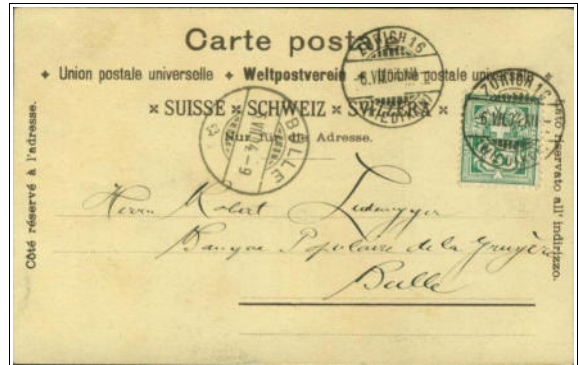 Carte postale
✦ Union postale universelle ✦ Weltpostverein ✦ Unione postale universale ✦
× SUISSE × SCHWEIZ × SVIZZERA ×
Nur für die Adresse.
Côté réservé à l'adresse.
Lato riservato all' indirizzo.
ZÜRICH 16
6.VII.04.XII
ZÜRICH 16
6.VII.04.XII
BULLE
VII.04-9
Herrn Robert
Banque Populaire de la Gruyère
Bulle